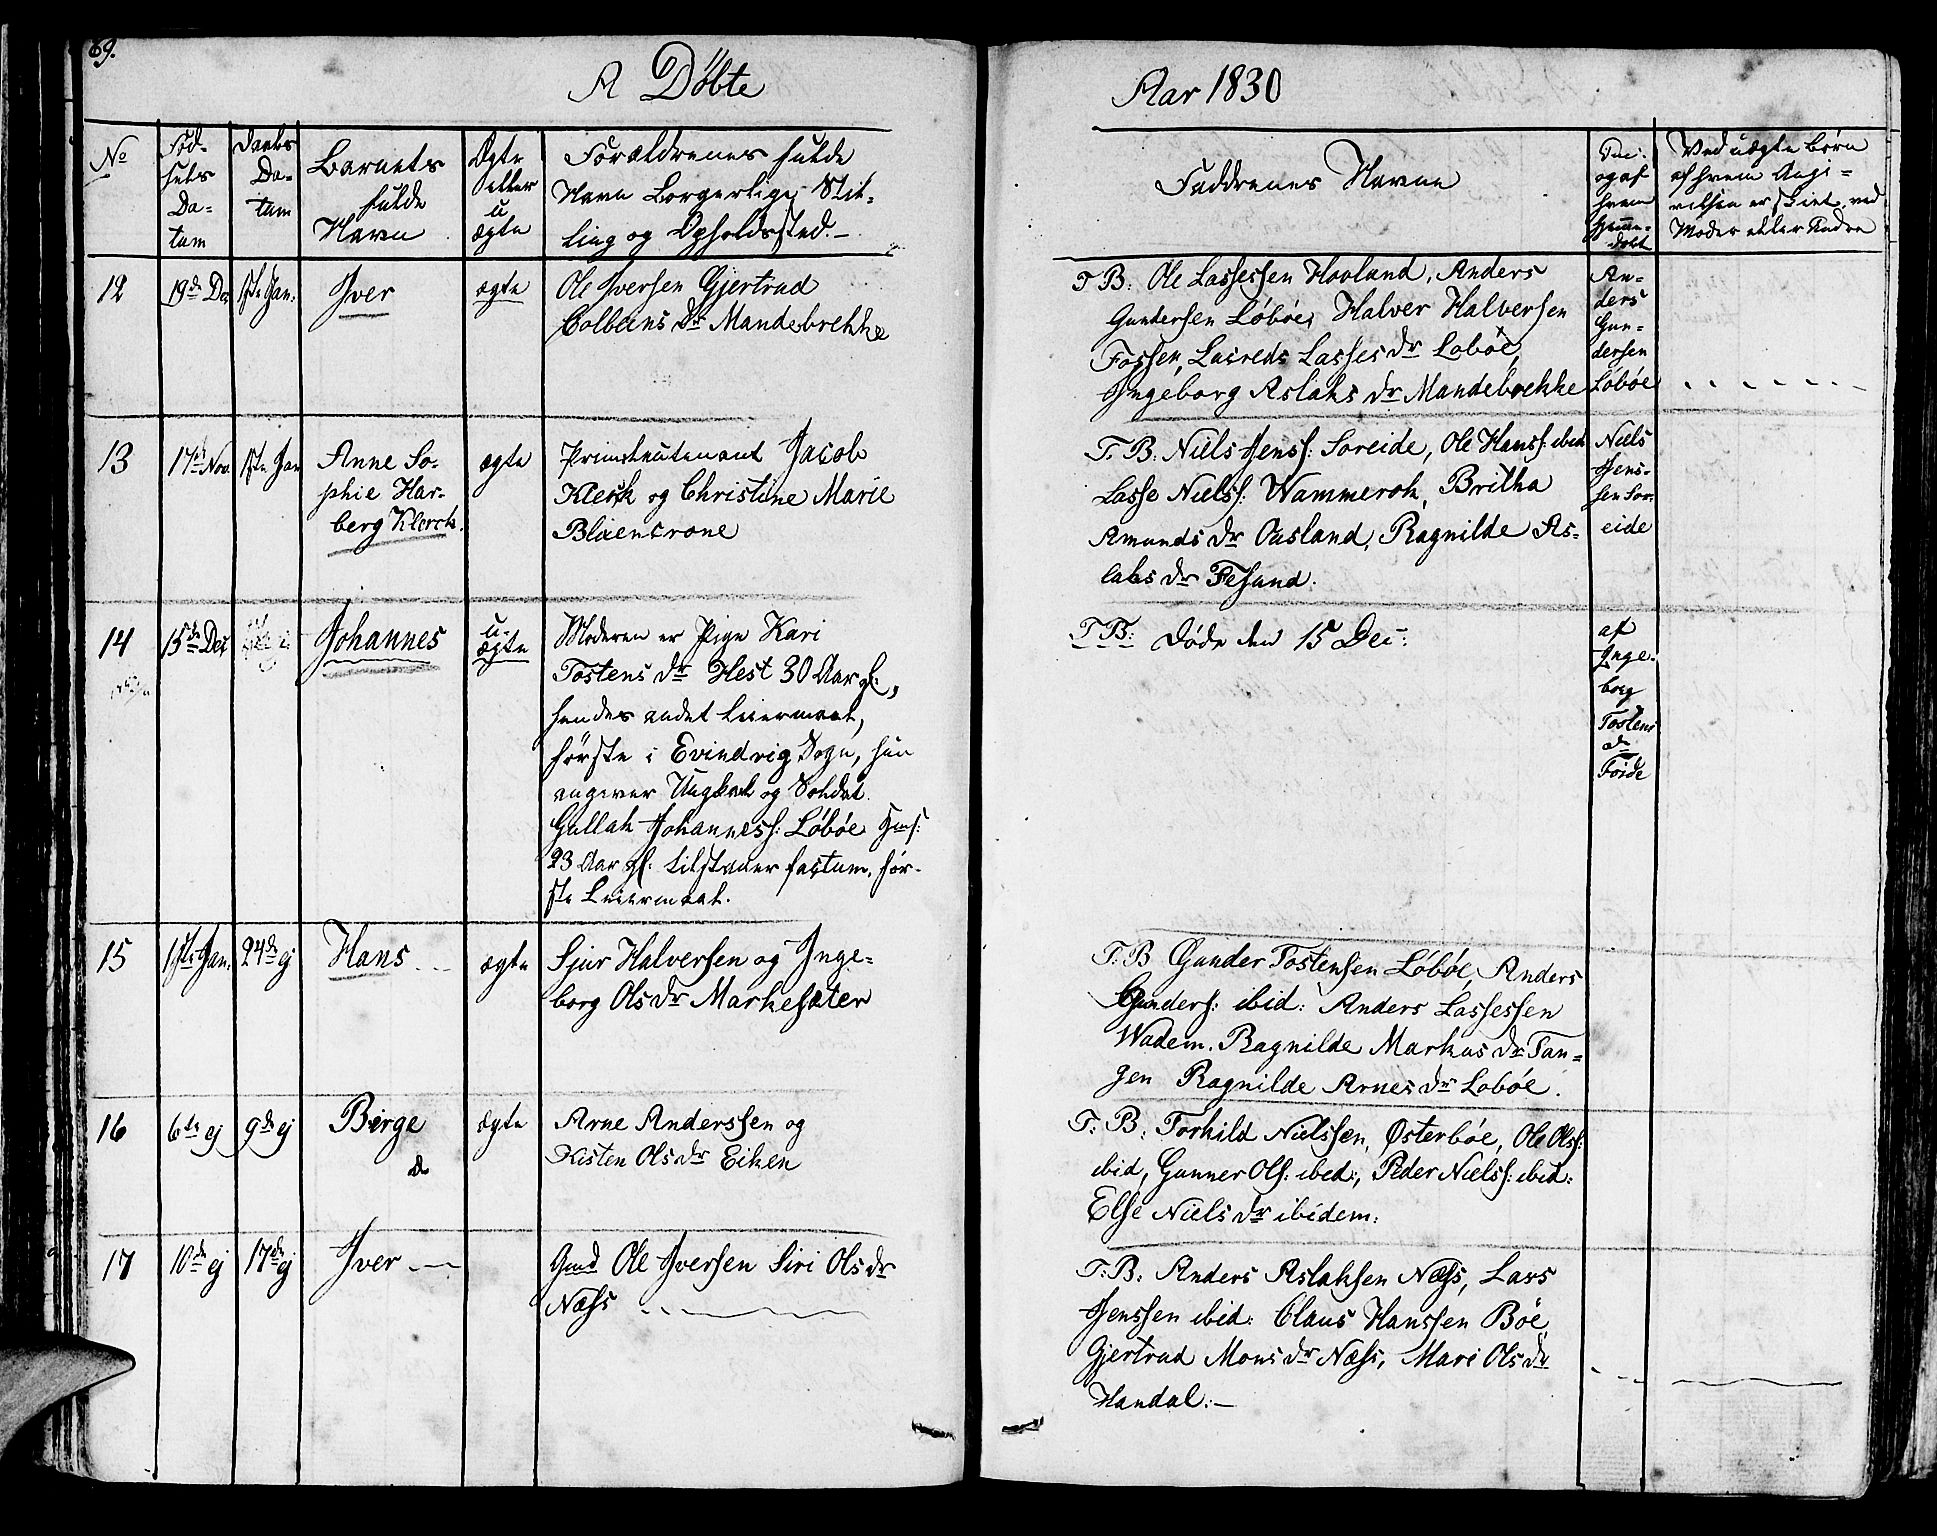 69.
A Døbte
Aar 1830
No
Fød-
sels
Da-
tum
Daabs
Da-
tum
Barnets
fulde
Navn
Ægte
eller
u
ægte
Forældrenes fulde
Navn Borgerlige Stil-
ling og Opholdssted.-
Faddrenes Navne
og af
hvem
Hjemme-
døbt
Ved uægte Børn
af hvem Angi-
velsen er skeet, ved
Moder eller Andre
12
19de Dec
1ste Jan:
Iver
ægte
Ole Iversen Gjertrud
Colbens Dr Mandebrekke
T B: Ole Lassessen Hovland, Anders
Gundersen Løbøe, Halver Halversen
Fossen, Lasses dr Løbøe,
Ingeborg Aslaks dr Mandebrekke
An-
ders
Gun-
dersen
Løbøe
13
17de Nov.
1ste Jan
Anne So-
phie Har-
berg Klerck.
ægte
Premilieutenant Jacob
Klerck og Christine Marie
Blixencrone
T. B: Niels Jenss: Soreide, Ole Hanss: ibid
Lasse Nielss: Wammerok, Britha
Amunds dr Oasland, Ragnilde As-
laks dr Fesund.
Niels
Jens-
sen Sor-
eide
14
15de Dec
Johannes
u-
ægte
Moderen er Pige Kari
Tostens dr Hest 30 Aar gl:,
hendes andet Leiermaal,
første i Evindvig Sogn, hun
angiver Ungkarl og Soldat
Gullak Johanness: Løbøe
23 Aar gl: tilstaaer factum, før-
ste Leiermaal.
T B: Døde den 15 Dec:
af
Inge-
borg
Tostens
dr
15
1ste Jan.
24de ej
Hans
ægte
Sjur Halversen og Inge-
borg Ols dr Markesæter
T. B Gunder Tostensen Løbøe, Anders
Gunders: ibid: Anders Lassessen
Wadem. Ragnilde Markus dr Tan-
gen Ragnilde Arnes dr Løbøe.
16
6te ej
9de ej
Børge
ægte
Arne Anderssen og
Kisten Ols dr Eiken
T. B: Torkild Nielssen, Østerbøe, Ole Olss:
ibid, Gunner Ols: ibid:, Peder Nielss: ibid:
Else Niels dr ibidem:
17
10de ej
17de ej
Iver
Gmd Ole Iversen Siri Ols dr
Næss
T. B: Anders Aslaksen Næss, Lars
Jenssen ibid: Claus Hanssen Bøe
Gjertrud Mons dr Næss, Mari Ols dr
Handal.-